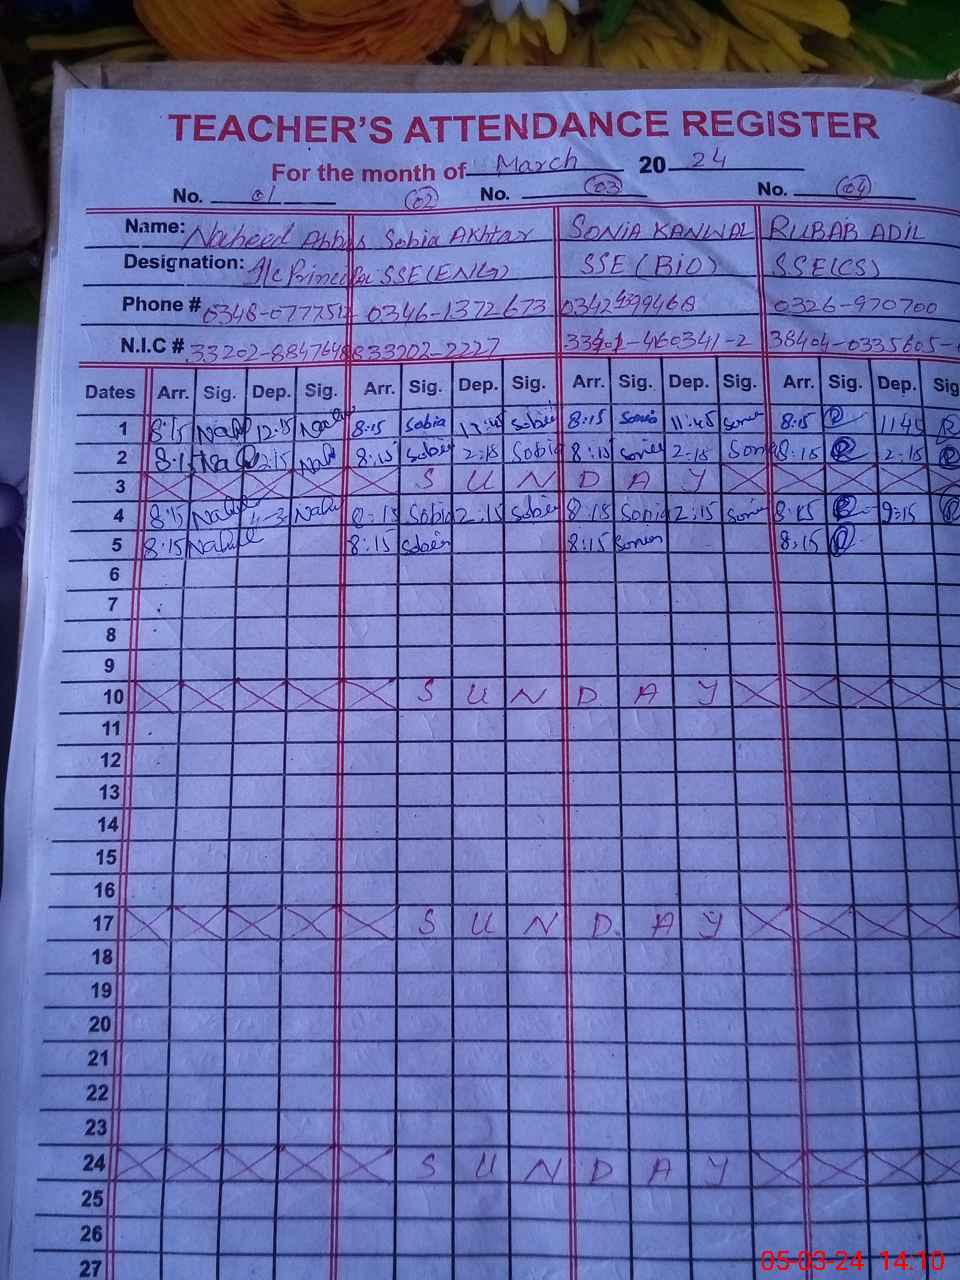 TEACHER'S ATTENDANCE REGISTER
For the month of March 20 24
No. 01 02 No. 03 No. 04
Name: Naheed Abbas Sobia Akhtar SONIA KANWAL RUBAB ADIL
Designation: I/c Principal SSE(ENG) SSE (BIO) SSE(CS)
Phone # 0346-1372673 0326-970700
N.I.C # 333202-2227 38404-0335605-
Dates Arr. Sig. Dep. Sig. Arr. Sig. Dep. Sig. Arr. Sig. Dep. Sig. Arr. Sig. Dep. Sig
1 8:15 12:15 8:15 Sobia Sobia 8:15 Sonia 11:45 Sonia 8:15 1145
2 8:15 2:15 8:15 Sobia 2:15 Sobia 8:15 Sonia 2:15 Sonia 8:15 2:15
3 S U N D A Y
4 8:15 8:15 Sobia 2:15 Sobia 8:15 Sonia 2:15 Sonia 8:15 2:15
5 8:15 8:15 Sobia 8:15 Sonia 8:15
6
7
8
9
10 S U N D A Y
11
12
13
14
15
16
17 S U N D A Y
18
19
20
21
22
23
24 S U N D A Y
25
26
27
05-03-24 14:10